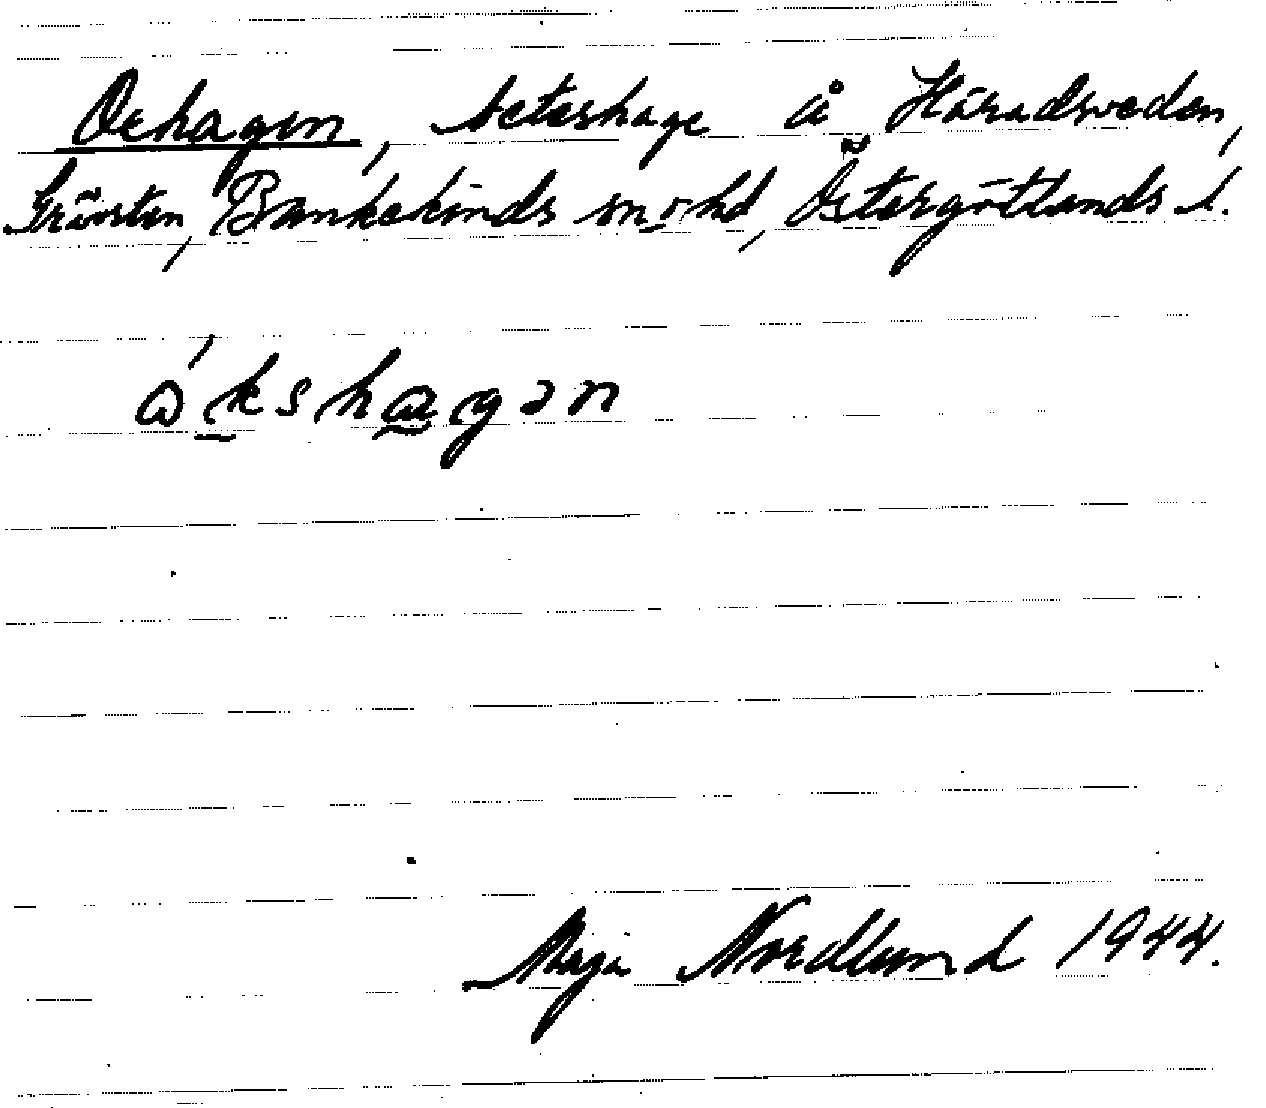 Oxhagen, beteshage å Häradsveden,
Grävsten, Bankekinds sn o hd, Östergötlands l.
ꞷ́kshagən
Maja Nordlund 1944.